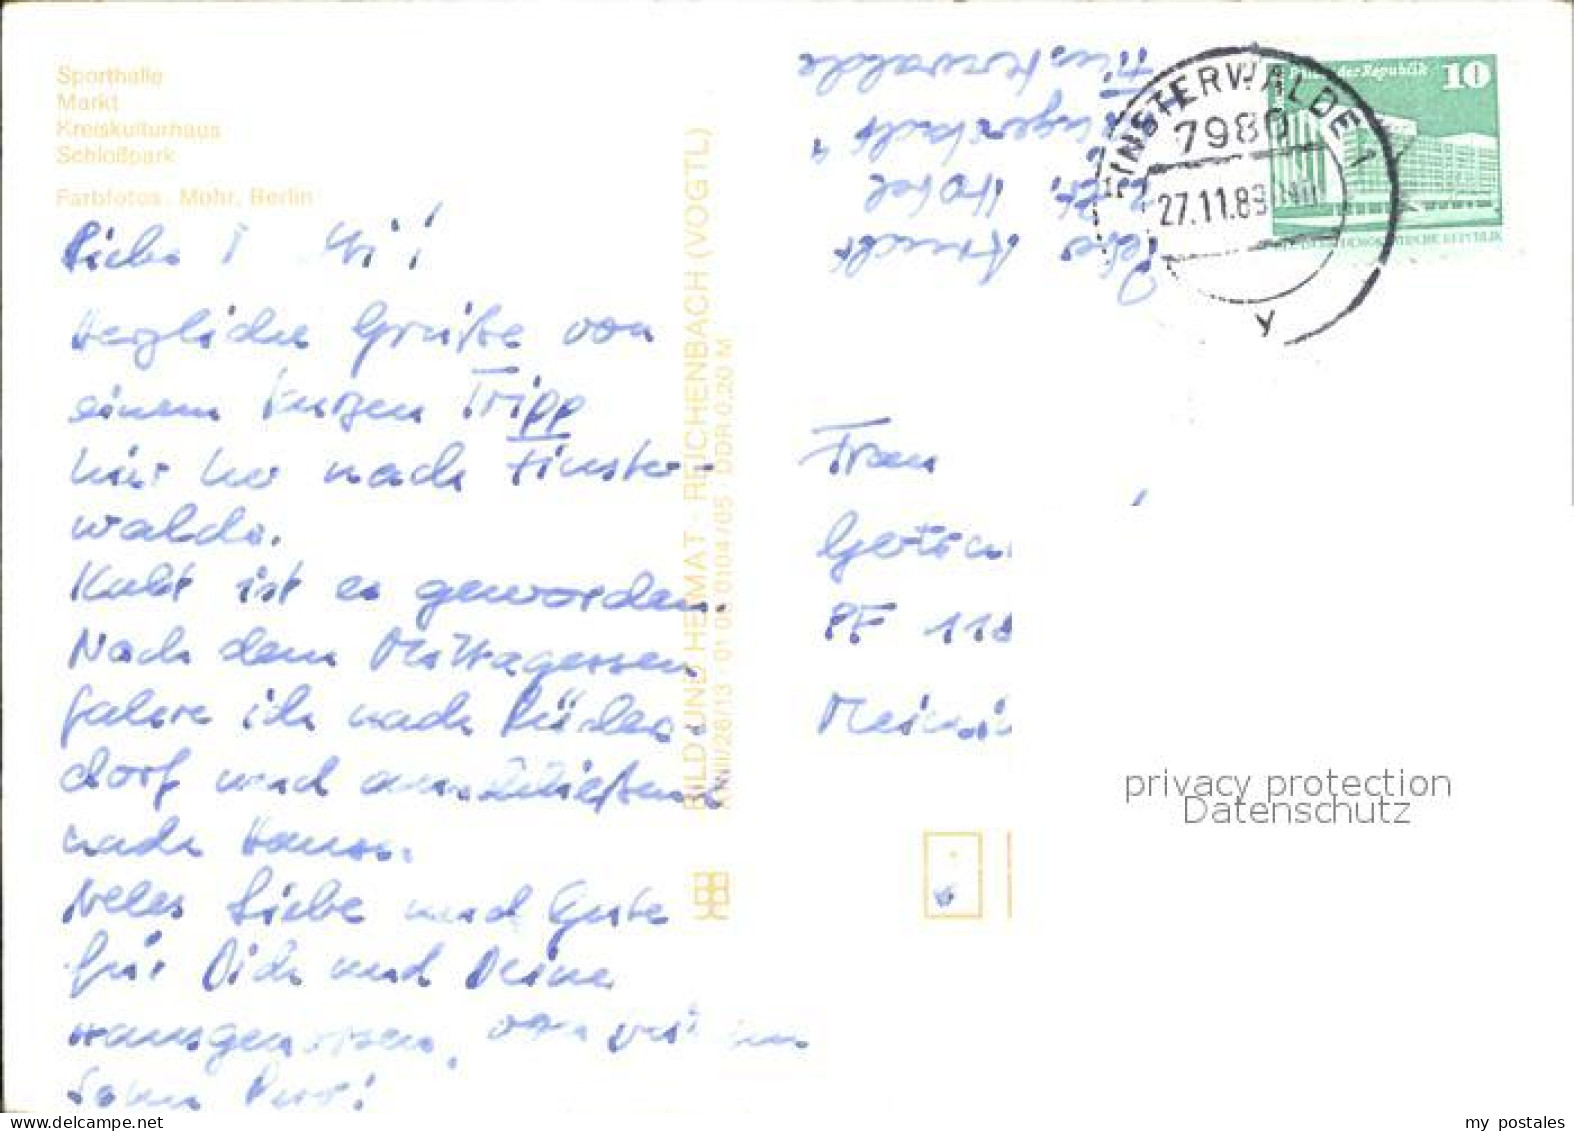 Sporthalle
Markt
Kreiskulturhaus
Schloßpark
Farbfotos: Mohr, Berlin
Herzliche Grüße von
einem kurzen Tripp
hier her nach Finster-
walde.
Kalt ist es geworden.
Nach dem Mittagessen
fahre ich nach Rüders-
dorf und anschließend
nach Hause.
Alles Liebe und Gute
für Dich und Deine
Hausgenossen, von
BILD UND HEIMAT · REICHENBACH (VOGTL)
DDR 0,20 M
Hotel
Finsterwalde
FINSTERWALDE 1
7980
27.11.89
y
Platz der Republik
10
DEUTSCHE DEMOKRATISCHE REPUBLIK
Frau
PF 118
privacy protection
Datenschutz
www.delcampe.net
my_postales